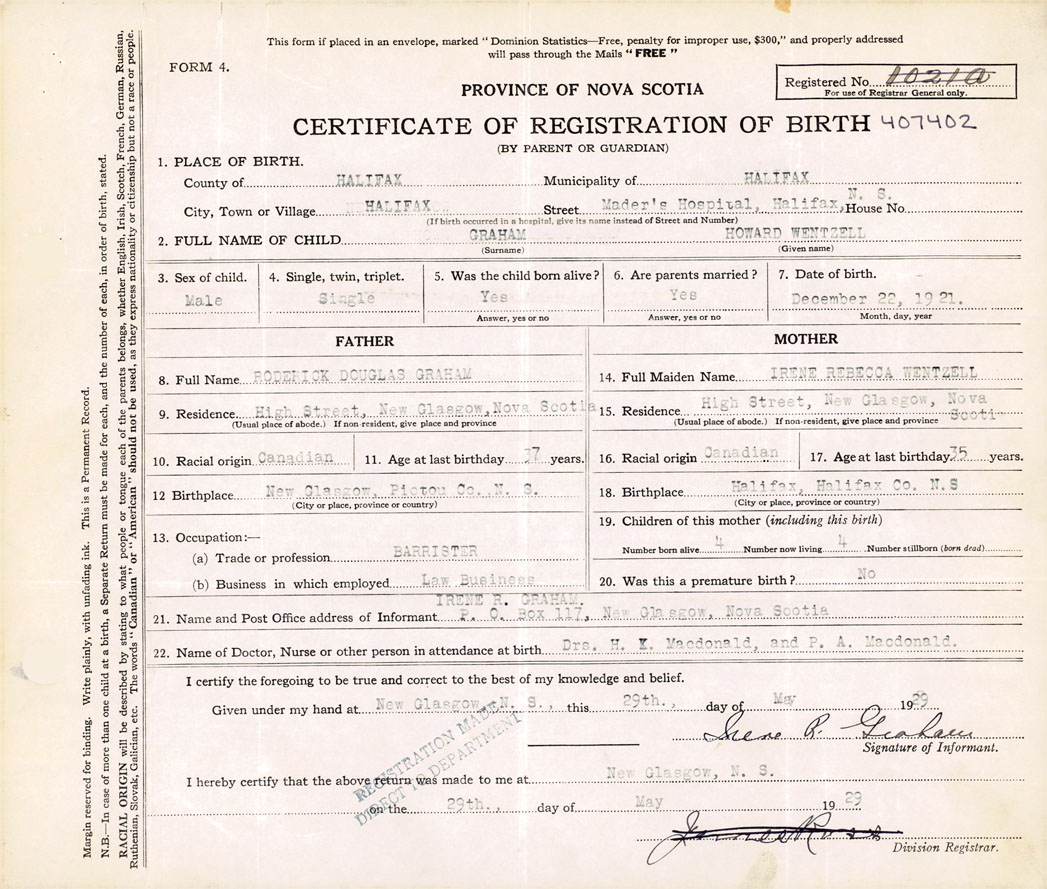 This form if placed in an envelope, marked " Dominion Statistics—Free, penalty for improper use, $300," and properly addressed
will pass through the Mails " FREE "
FORM 4.
Registered No. 1021a
For use of Registrar General only.
PROVINCE OF NOVA SCOTIA
CERTIFICATE OF REGISTRATION OF BIRTH 407402
(BY PARENT OR GUARDIAN)
1. PLACE OF BIRTH.
County of HALIFAX Municipality of HALIFAX
City, Town or Village HALIFAX Street Mader's Hospital, Halifax, N. S. House No.
(If birth occurred in a hospital, give its name instead of Street and Number)
2. FULL NAME OF CHILD GRAHAM HOWARD WENTZELL
(Surname) (Given name)
3. Sex of child. 4. Single, twin, triplet. 5. Was the child born alive? 6. Are parents married? 7. Date of birth.
Male Single Yes Yes December 22, 1921.
Answer, yes or no Answer, yes or no Month, day, year
FATHER MOTHER
8. Full Name RODERICK DOUGLAS GRAHAM 14. Full Maiden Name IRENE REBECCA WENTZELL
9. Residence High Street, New Glasgow, Nova Scotia 15. Residence High Street, New Glasgow, Nova Scoti
(Usual place of abode.) If non-resident, give place and province (Usual place of abode.) If non-resident, give place and province
10. Racial origin Canadian 11. Age at last birthday 37 years. 16. Racial origin Canadian 17. Age at last birthday 35 years.
12 Birthplace New Glasgow, Pictou Co. N. S. 18. Birthplace Halifax, Halifax Co. N.S
(City or place, province or country) (City or place, province or country)
13. Occupation:— 19. Children of this mother (including this birth)
(a) Trade or profession BARRISTER Number born alive 4 Number now living 4 Number stillborn (born dead)
(b) Business in which employed Law Business 20. Was this a premature birth? No
IRENE R. GRAHAM.
21. Name and Post Office address of Informant P. O. Box 117, New Glasgow, Nova Scotia
22. Name of Doctor, Nurse or other person in attendance at birth Drs. H. K. Macdonald, and P. A. Macdonald.
I certify the foregoing to be true and correct to the best of my knowledge and belief.
Given under my hand at New Glasgow, N. S., this 29th., day of May 1929
Irene R. Graham
Signature of Informant.
REGISTRATION MADE
DIRECT TO DEPARTMENT
I hereby certify that the above return was made to me at New Glasgow, N. S.
on the 29th., day of May 1929
James Ross
Division Registrar.
Margin reserved for binding. Write plainly, with unfading ink. This is a Permanent Record.
N.B.—In case of more than one child at a birth, a Separate Return must be made for each, and the number of each, in order of birth, stated.
RACIAL ORIGIN will be described by stating to what people or tongue each of the parents belongs, whether English, Irish, Scotch, French, German, Russian,
Ruthenian, Slovak, Galician, etc. The words "Canadian" or "American" should not be used, as they express nationality or citizenship but not a race or people.